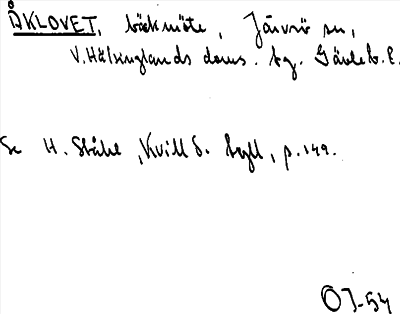 ÅKLOVET, bäckmöte, Järvsö sn,
V. Hälsinglands doms. hg. Gävleb. l.
Se H. Ståhl, Kvill o. tyll, p. 149.
OJ-54